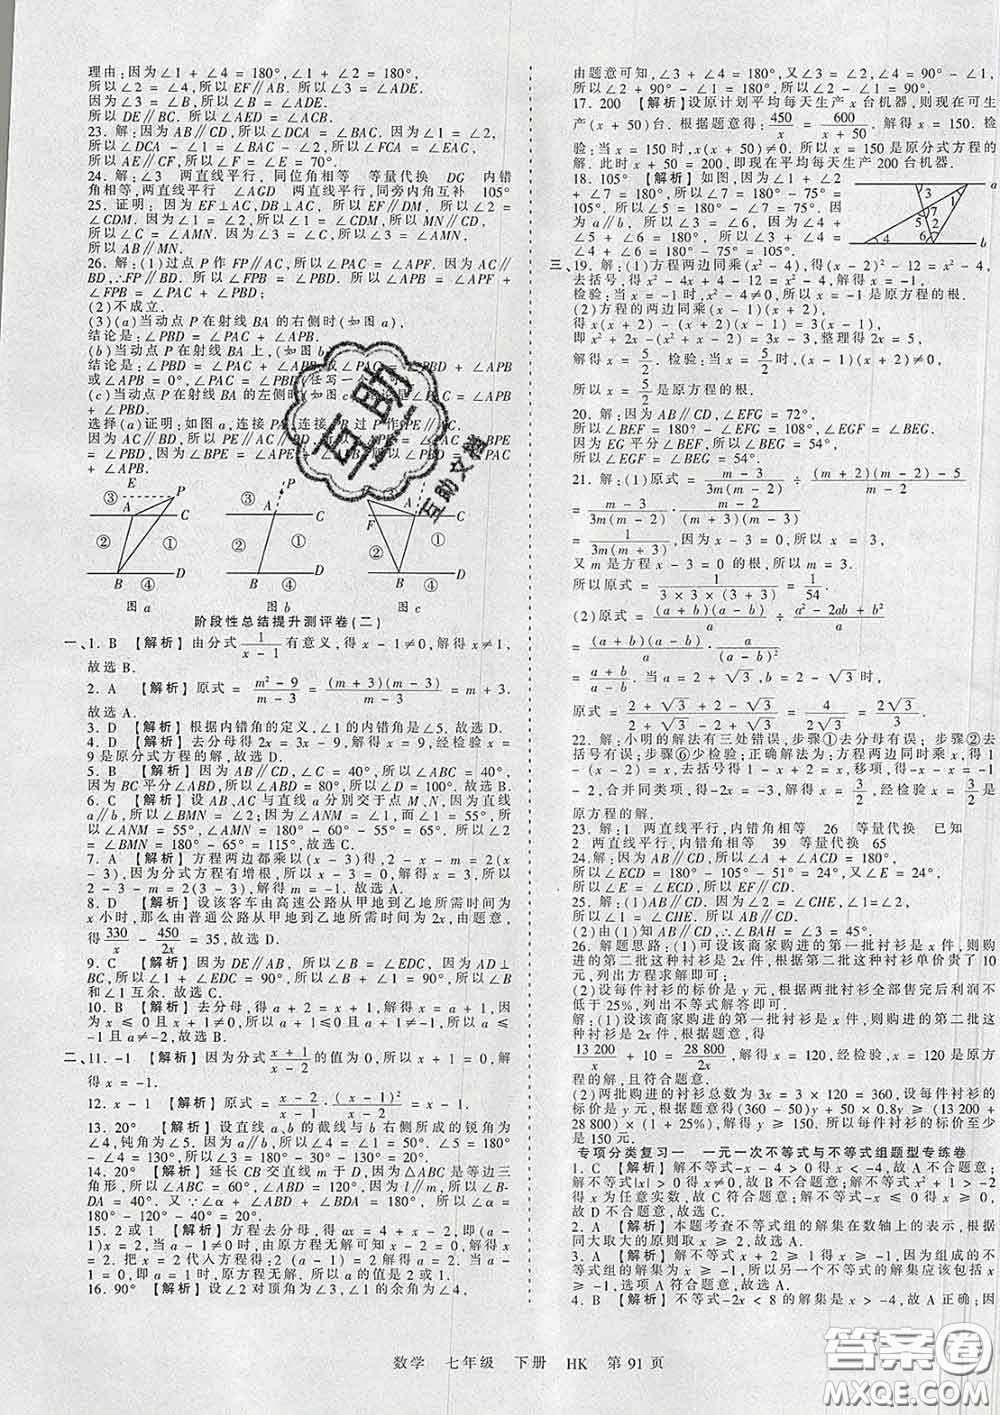 理由:因为∠1 + ∠4 = 180°,∠3 + ∠4 = 180°,
所以∠2 = ∠4,所以EF∥AB. 所以∠3 = ∠A.
因为∠3 = ∠B, 所以∠A = ∠B.
所以DE∥BC. 所以∠AED = ∠ACB.
23. 解:因为AB∥CD,所以∠DCA = ∠BAC,∠1 = ∠2,
所以∠DCA - ∠1 = ∠BAC - ∠2,所以∠FCA = ∠EAC,
所以CF∥AE,所以∠F = ∠E = 70°.
24. 解:∠3 两直线平行, 同位角相等 等量代换 DG 内错
角相等,两直线平行 ∠AGD 两直线平行,同旁内角互补 105°
25. 证明: 因为EF⊥AC,DB⊥AC, 所以EF∥DM, 所以∠2 =
∠CDM. 因为∠1 = ∠2,所以∠1 = ∠CDM,所以MN∥CD,
所以∠C = ∠AMN. 因为∠3 = ∠C,所以∠3 = ∠AMN.
26. 解:(1)过点P作FP∥AC, 所以∠PAC = ∠APF. 因为AC∥
BD,∴FP∥BD. 所以∠FPB = ∠PBD. 所以∠APB = ∠APF +
∠FPB = ∠PAC + ∠PBD.
(2)不成立.
(3)(a)当动点P在射线BA的右侧时(如图a),
结论是:∠PBD = ∠PAC + ∠APB.
(b)当动点P在射线BA上,(如图b
结论是:∠PBD = ∠PAC + ∠APB或∠PAC = ∠PBD + ∠APB
或∠APB = 0°,∠PAC = ∠PBD(任写一
(c)当动点P在射线BA的左侧时(如图
= ∠APB + ∠PBD.
选择(a)证明:如图a,连接PA,连接PB过P作PE∥AC
因为AC∥BD,所以PE∥AC∥BD,所以
因为∠BPE = ∠APB + ∠APE,所以∠PBD = ∠PAC + ∠APB.
E P ③ A C ② ① B ④ D
图a
③ A C ② ① B ④ D
图b
F A C ② ① B ④ D
图c
阶段性总结提升测评卷(二)
一、1. B 【解析】 由分式1/(x - 1)有意义,得x - 1≠0,解得x≠1,
故选B.
2. A 【解析】原式 = (m² - 9)/(m - 3) = (m + 3)(m - 3)/(m - 3) = m + 3.
故选A.
3. D 【解析】根据内错角的定义,∠1的内错角是∠5. 故选D.
4. D 【解析】去分母得2x = 3x - 9,解得x = 9,经检验x =
9是原分式方程的解,故选D.
5. B 【解析】因为AB∥CD,所以∠ABC = ∠C = 40°,因
为BC平分∠ABD,所以∠ABD = 2∠ABC = 80°,因为AB
∥CD,所以∠D = 180° - ∠ABD = 100°. 故选B.
6. C 【解析】设AB、AC与直线a分别交于点M、N,因为直线
a∥b,所以∠BMN = ∠2, 因为∠ANM = ∠1,而∠1 = 55°,所
以∠ANM = 55°,∠AMN = 180° - 60° - 55° = 65°,所以∠2 =
∠BMN = 180° - 65° = 115°,故选C.
7. A 【解析】方程两边都乘以(x - 3)得:2 - x - m = 2(x - 3),
因为分式方程有增根,所以x - 3 = 0,解得x = 3,所以
2 - 3 - m = 2(3 - 3),解得m = - 1. 故选A.
8. D 【解析】设该客车由高速公路从甲地到乙地所需时间为
x小时,那么由普通公路从甲地到乙地所需时间为2x,由题意,
得330/x - 450/2x = 35,故选D.
9. C 【解析】因为DE∥AB,所以∠B = ∠EDC,因为AD⊥
BC,所以∠1 + ∠EDC = 90°,所以∠B + ∠1 = 90°,即∠B
和∠1互余. 故选C.
10. B 【解析】去分母,得a + 2 = x + 1,解得x = a + 1,因
为x ≤ 0且x + 1≠0,所以a + 1≤0且a + 1≠ -1,所以a ≤
-1且a≠-2,所以a≤-1且a≠-2. 故选B.
二、11. -1 【解析】因为分式(x + 1)/(x - 1)的值为0,所以x + 1 = 0,解
得x = -1.
12. x - 1 【解析】原式 = (x - 1)/x · (x - 1)²
13. 20° 【解析】设直线a、b的截线与b右侧所成的锐角为
∠4,钝角为∠5. 因为a∥b,所以∠4 = ∠1 = 50°,∠5 = 180° -
∠4 = 180° - 50° = 130°,所以∠3 = 180° - 130° - 30° = 20°.
14. 20° 【解析】延长CB交直线m于D,因为△ABC是等边三
角形,所以∠ABC = 60°,因为l∥m,所以∠1 = 40°. 所以∠α =
180° - 120° - 40° = 20°.
15. 2或1 【解析】方程去分母,得ax = 4 + x - 2,即(a -
1)x = 2,当a - 1 = 0,即a = 1时,由原方程无解可知x - 2 = 0,解得x =
2. 把x = 2代入方程得:2(a - 1) = 2,解得a = 2,当a - 1 =
0,即a = 1时,原方程无解. 所以a的值是2或1.
16. 90° 【解析】设∠2的对顶角为∠3,∠1的余角为∠4,
由题意可知,∠3 + ∠4 = 180°,又∠3 = ∠2,∠4 = 90° - ∠1,
所以∠2 + 90° - ∠1 = 180°,所以∠2 - ∠1 = 90°.
17. 200 【解析】设原计划平均每天生产x台机器,则现在可生
产(x + 50)台. 根据题意得:450/x = 600/(x + 50). 解得x = 150. 检
验:当x = 150时,x(x + 50)≠0. 所以x = 150是原分式方程的
解. 此时x + 50 = 200,即现在平均每天生产200台机器.
18. 105° 【解析】如图,因为∠1 + ∠2
+ ∠7 = 180°,所以∠7 = 180° - 75° =
105°. 所以∠6 + ∠7 = 180° - 75° =
105°. 因为a∥b,所以∠3 = ∠6,所以
∠4 + ∠5 + ∠6 = 180°,所以∠3 +
∠4 + ∠5 = 105°.
3 1 5 7 2 4 6
三、19. 解:(1)方程两边同乘(x² - 4),得(x - 2)² - 12 = x² - 4,
去括号,得x² - 4x + 4 - 12 = x² - 4, 解得x = -1,
检验;当x = -1时,x² - 4≠0,所以x = -1是原方程的根.
(2)方程的两边同乘(x - 1)(x + 2),
得x(x + 2) - (x + 2)(x - 1) = 3(x - 1),
即x² + 2x - (x² + x - 2) = 3x - 3,整理得2x = 5,
解得x = 5/2. 检验:当x = 5/2时,(x - 1)(x + 2)≠0,
所以x = 5/2是原方程的根.
20. 解:因为AB∥CD,∠EFG = 72°,
所以∠BEF = 180° - ∠EFG = 108°,∠EGF = ∠BEG.
因为EG平分∠BEF, 所以∠BEG = ∠BEF = 54°.
所以∠EGF = ∠BEG = 54°.
21. 解:(1)原式 = (m - 3)/(3m(m - 2)) ÷ ((m + 2)(m - 2) - 5)/(m - 2)
= (m - 3)/(3m(m - 2)) · (m - 2)/((m + 3)(m - 3))
= 1/(3m(m + 3)). 因为x - 3 = 0,所以x = 3,
又m是方程x - 3 = 0的根,所以m = 3,
所以原式 = 1/(3 × 3 × (3 + 3)) = 1/54.
(2)原式 = (a + b)(a - b)/a ÷ (a² - 2ab + b²)/a
= (a + b)(a - b)/a · a/(a - b)²
= (a + b)/(a - b). 当a = 2 + √3,b = 2 - √3时,
原式 = (2 + √3 + 2 - √3)/(2 + √3 - 2 + √3) = 4/(2√3) = 2√3/3.
22. 解:小明的解法有三处错误,步骤①去分母有误; 步骤②去
括号有误;步骤⑥少检验;正确解法为:方程两边同时乘x,得1
- (x - 2) = x,去括号,得1 - x + 2 = x,移项,得-x - x = -1
- 2,合并同类项,得-2x = -3,解得x = 3/2,经检验x = 3/2是
原方程的解.
23. 解:1 两直线平行,内错角相等 26 等量代换 已知
2 两直线平行,内错角相等 39 等量代换 65
24. 解:因为AB∥CD,所以∠A + ∠ACD = 180°,
所以∠ECD = 180° - 105° - 51° = 24°,
所以∠E = ∠ECD, 所以EF∥CD,所以EF∥AB.
25. 解:(1)因为AE∥BC,所以∠2 = ∠CHE. 因为∠1=∠2,
所以∠1 = ∠CHE. 所以AB∥DE.
(2)由(1)知AB∥DE,∴∠BHD = ∠B = 45°.
26. 解题思路:(1)可设该商家购进的第一批衬衫是x件,则购
进的第二批这种衬衫是2x件,根据第二批这种衬衫单价贵了10
元,列出方程求解即可;
(2)设每件衬衫的标价是y元,根据两批衬衫全部售完后利润不
低于25%,列出不等式解答即可.
解:(1)设该商家购进的第一批衬衫是x件,则购进的第二批这
种衬衫是2x件,根据题意,得
13 200/x + 10 = 28 800/2x,解得x = 120,经检验,x = 120是原方
程的解,且符合题意.
(2)两批购进的衬衫总数为3x = 3 × 120 = 360,设每件衬衫的
标价是y元,根据题意得(360 - 50)y + 50 × 0.8y≥(13 200 +
28 800) × (1 + 25%),解得y≥150,所以每件衬衫的标价至少
是150元.
专项分类复习一 一元一次不等式与不等式组题型专练卷
1. C 【解析】解不等式-x - 4 > 0得x < -4,故A不合题意;
解不等式|x| > 0得x≠0,
为任意实数,故C符合题意;
故D不合题意. 故选C.
2. A 【解析】本题考查不等式组的解集在数轴上的表示,根据
同大取大的原则取x > 1,故选A.
3. A 【解析】x + 2≥1得x≥-1,因为组成的不等
式组的解集是x≥1,另一个不等式的解集应该包括x
≥-1,选项A符合题意. 故选A.
4. B 【解析】不等式-2x < 8的解集是x > -4,故A正确;因
数学 七年级 下册 HK 第91页
互助
互助文档
答案卷
MXQE.COM